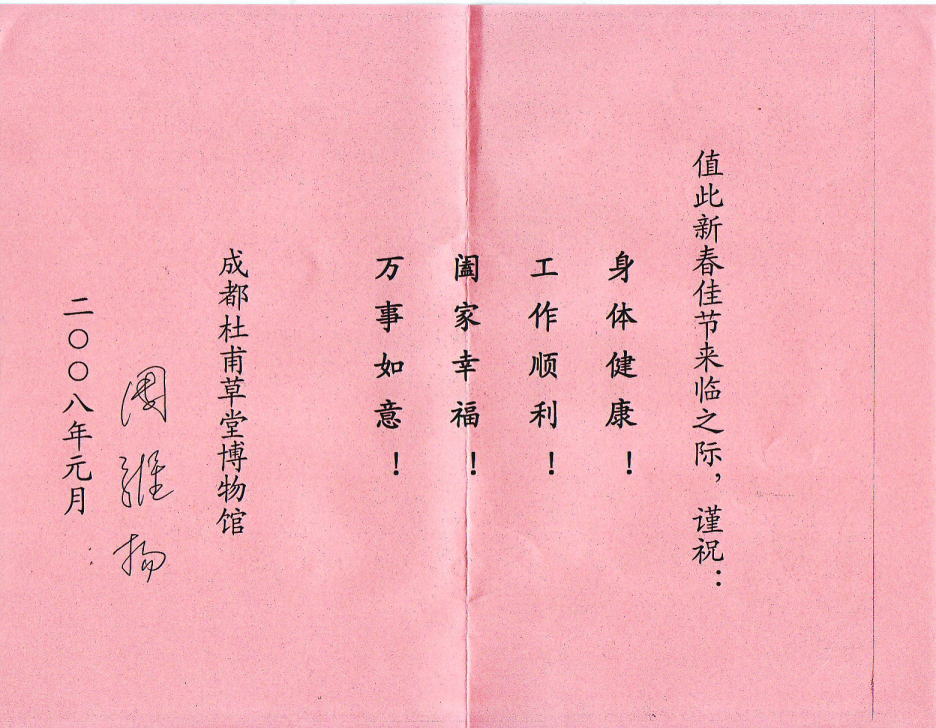 值此新春佳节来临之际，谨祝：
身体健康！
工作顺利！
阖家幸福！
万事如意！
成都杜甫草堂博物馆
周维扬
二〇〇八年元月